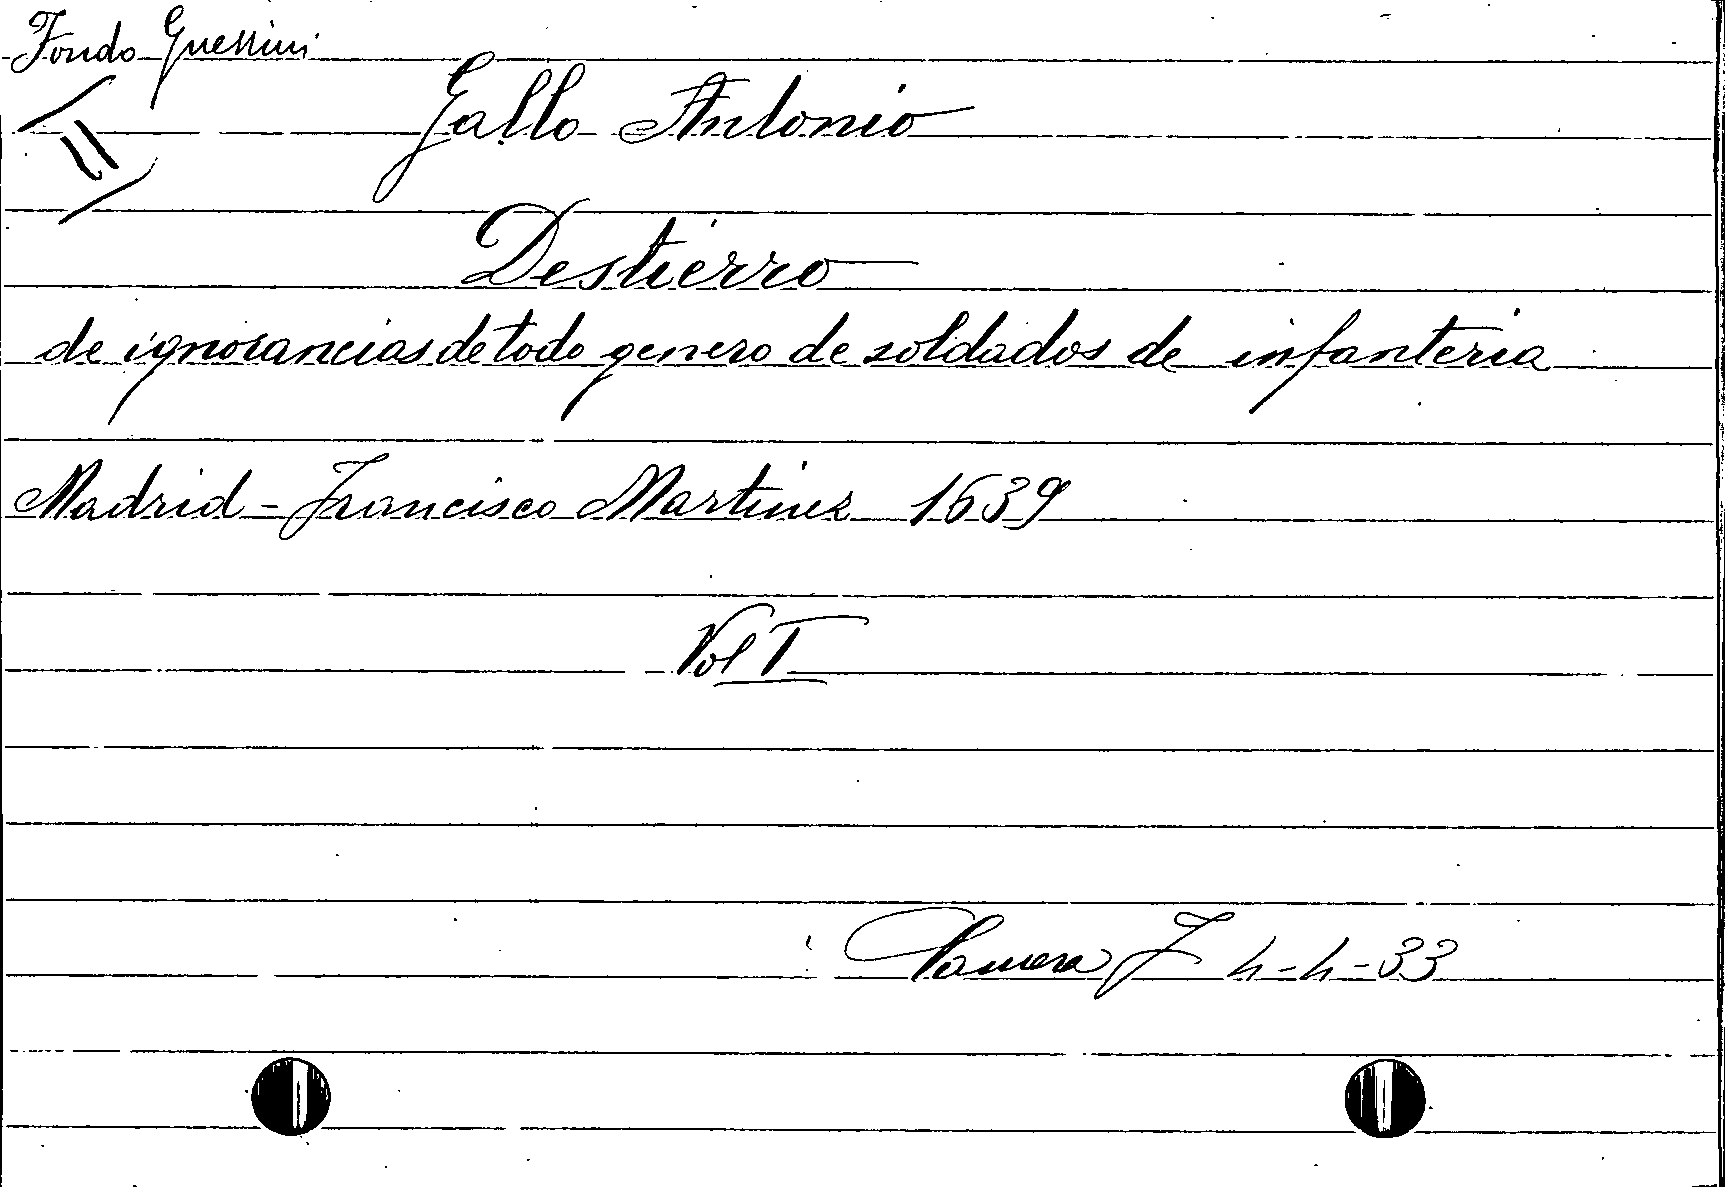 Fondo Guerrini
II
Gallo Antonio
Destierro
de ignorancias de todo genero de soldados de infanteria
Madrid - Francisco Martinez 1639
Vol I
Camera J 4-4-33